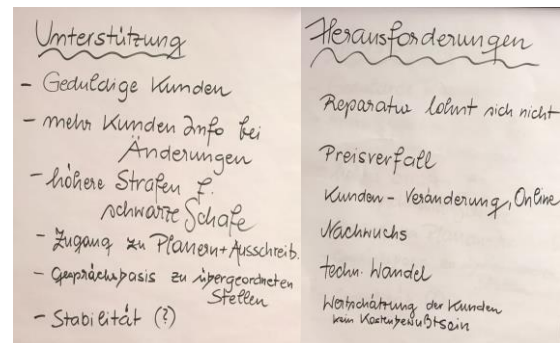 Unterstützung
- Geduldige Kunden
- mehr Kunden Info bei
Änderungen
- höhere Strafen f.
schwarze Schafe
- Zugang zu Planern + Ausschreib.
- Gesprächsbasis zu übergeordneten
Stellen
- Stabilität (?)
Herausforderungen
Reparatur lohnt sich nicht
Preisverfall
Kunden - Veränderung, Online
Nachwuchs
techn. Wandel
Wertschätzung der Kunden
kein Kostenbewußtsein